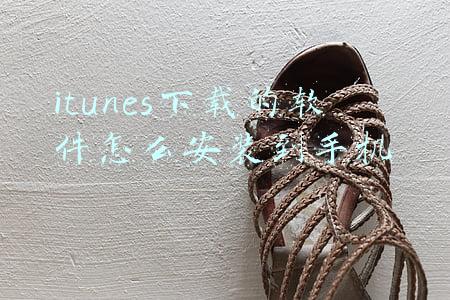 itunes下载的软
件怎么安装到手机